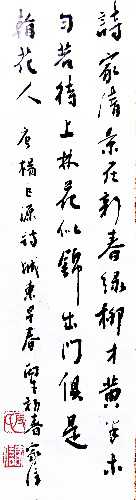 詩家清景在新春綠柳才黃半未
勻若待上林花似錦出門俱是
看花人 唐楊巨源詩城東早春